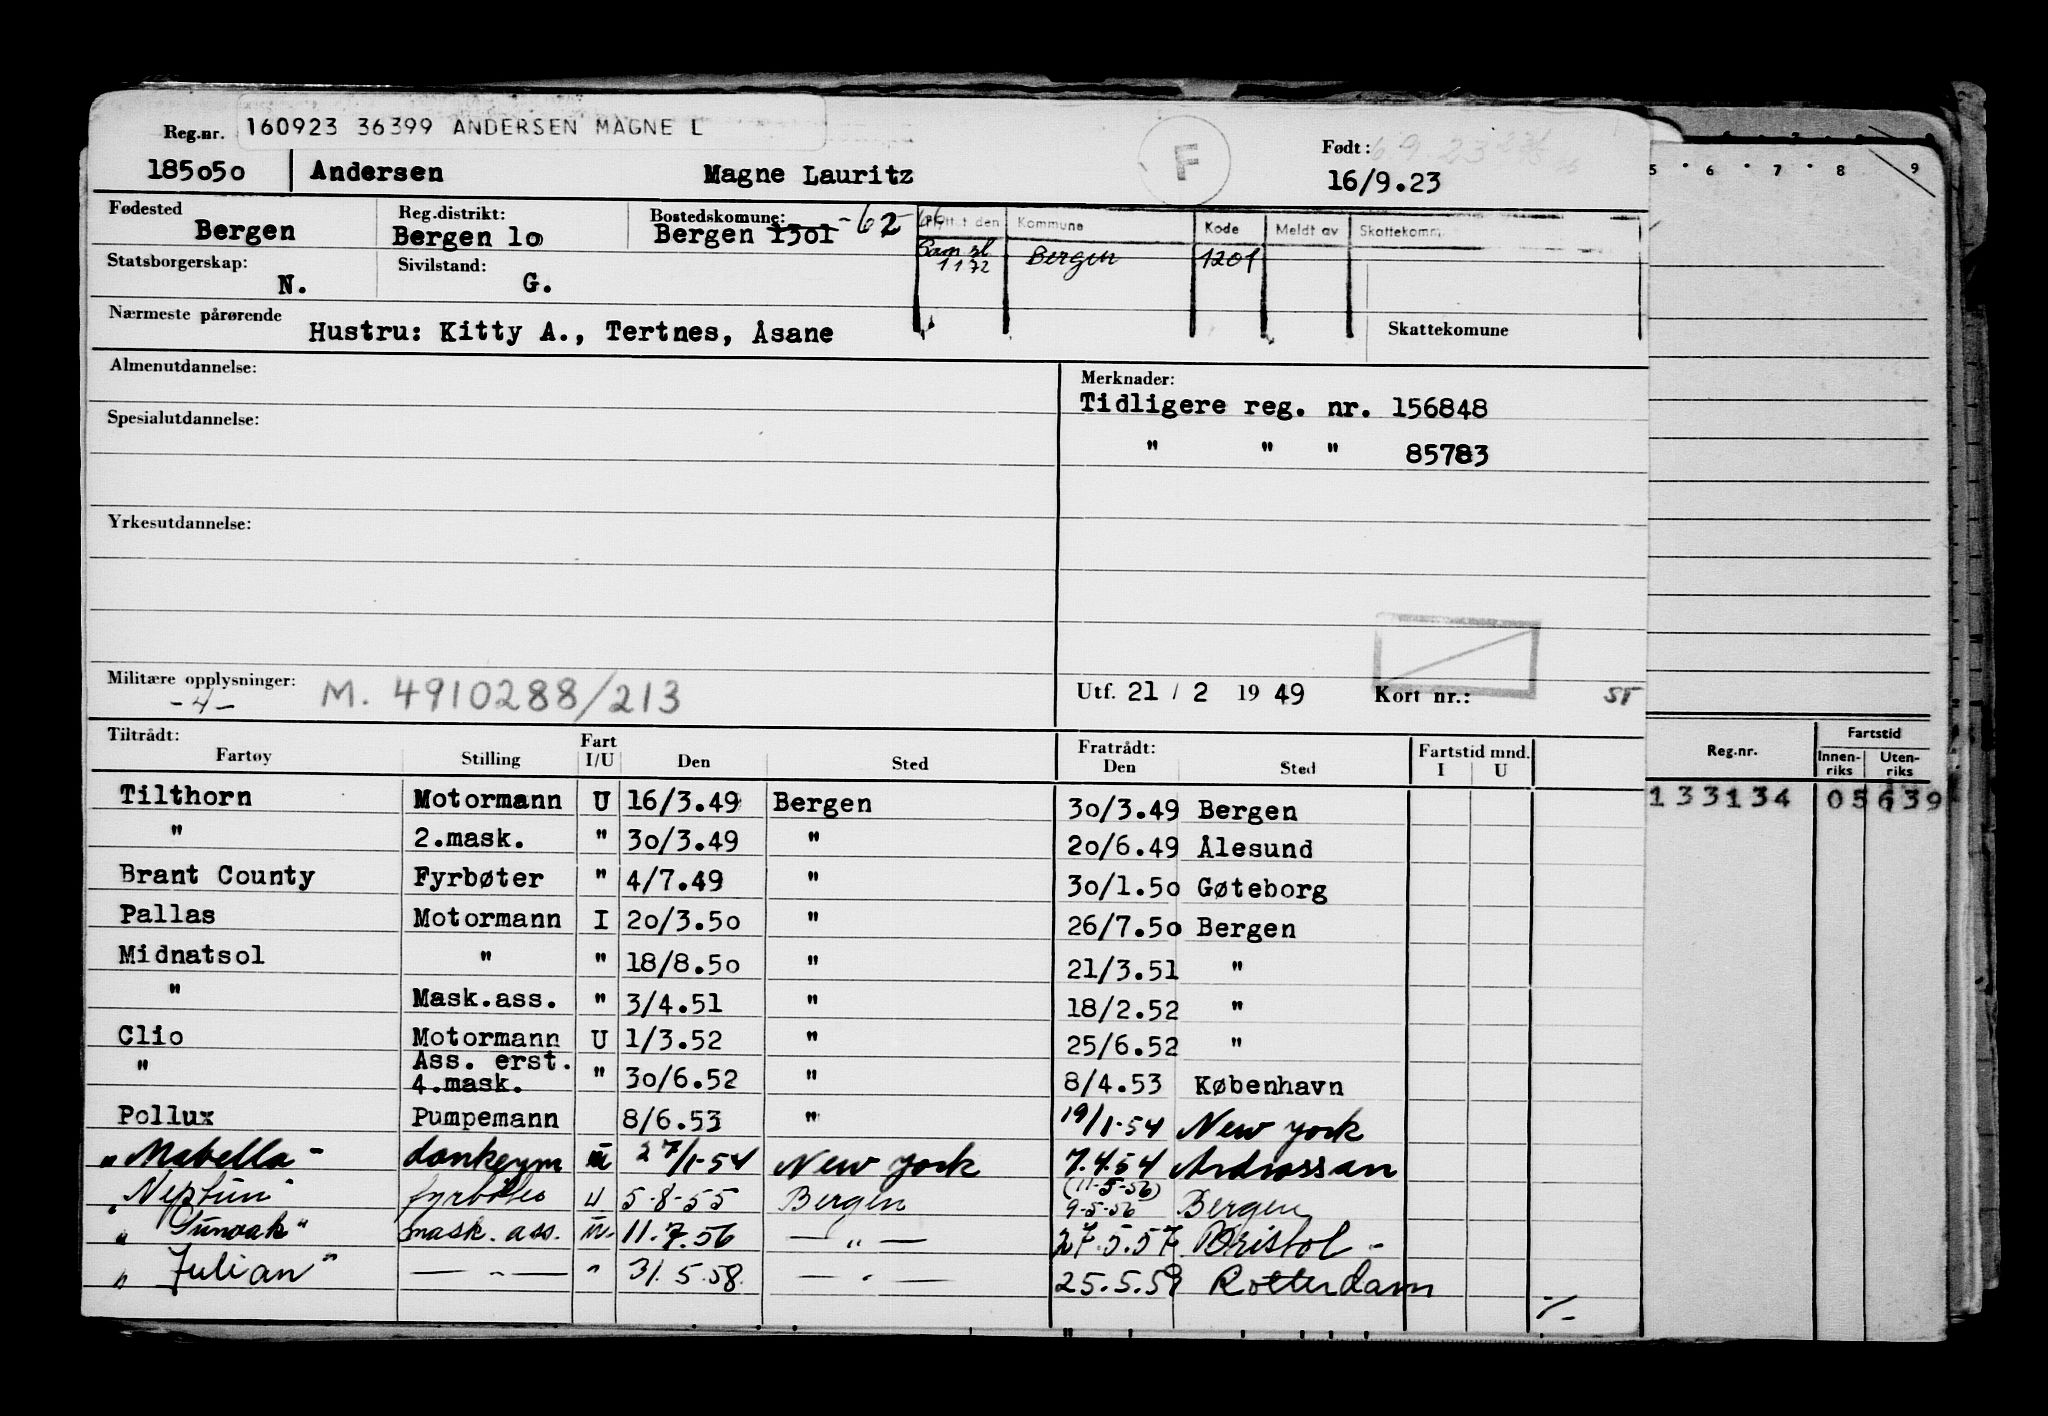 Reg.nr. 160923 36399 ANDERSEN MAGNE L
185050 Andersen Magne Lauritz F Født: 16/9.23
Fødested Bergen Reg.distrikt: Bergen 10 Bostedskomune: Bergen 1301 -62
Flytt.t den Kommune Kode Meldt av Skattekomm.
1 1 72 Bergen 1201
Statsborgerskap: N. Sivilstand: G.
Nærmeste pårørende Hustru: Kitty A., Tertnes, Åsane Skattekomune
Almenutdannelse: Merknader:
Tidligere reg. nr. 156848
Spesialutdannelse: " " " 85783
Yrkesutdannelse:
Militære opplysninger: -4- M. 4910288/213 Utf. 21 / 2 19 49 Kort nr.:
Tiltrådt: Fratrådt:
Fartøy Stilling Fart I/U Den Sted Den Sted Fartstid mnd. I U
Tilthorn Motormann U 16/3.49 Bergen 30/3.49 Bergen
" 2.mask. " 30/3.49 " 20/6.49 Ålesund
Brant County Fyrbøter " 4/7.49 " 30/1.50 Gøteborg
Pallas Motormann I 20/3.50 " 26/7.50 Bergen
Midnatsol " " 18/8.50 " 21/3.51 "
" Mask.ass. " 3/4.51 " 18/2.52 "
Clio Motormann U 1/3.52 " 25/6.52 "
" Ass. erst. 4.mask. " 30/6.52 " 8/4.53 København
Pollux Pumpemann 8/6.53 " 19/1-54 New York
" Mabella - donkeym 27/1-54 New York 7.4.54 Ardrossan
" Neptun " fyrbøter u 5-8-55 Bergen (11-5-56) 9-5-56 Bergen
" Sunoak " mask. ass. 11.7.56 — " — 27.5.57 Bristol -
" Julian " — " — " 31.5.58. — " — 25.5.59 Rotterdam
./.
5 6 7 8 9
Reg.nr. Fartstid
Innenriks Utenriks
133134 05 639